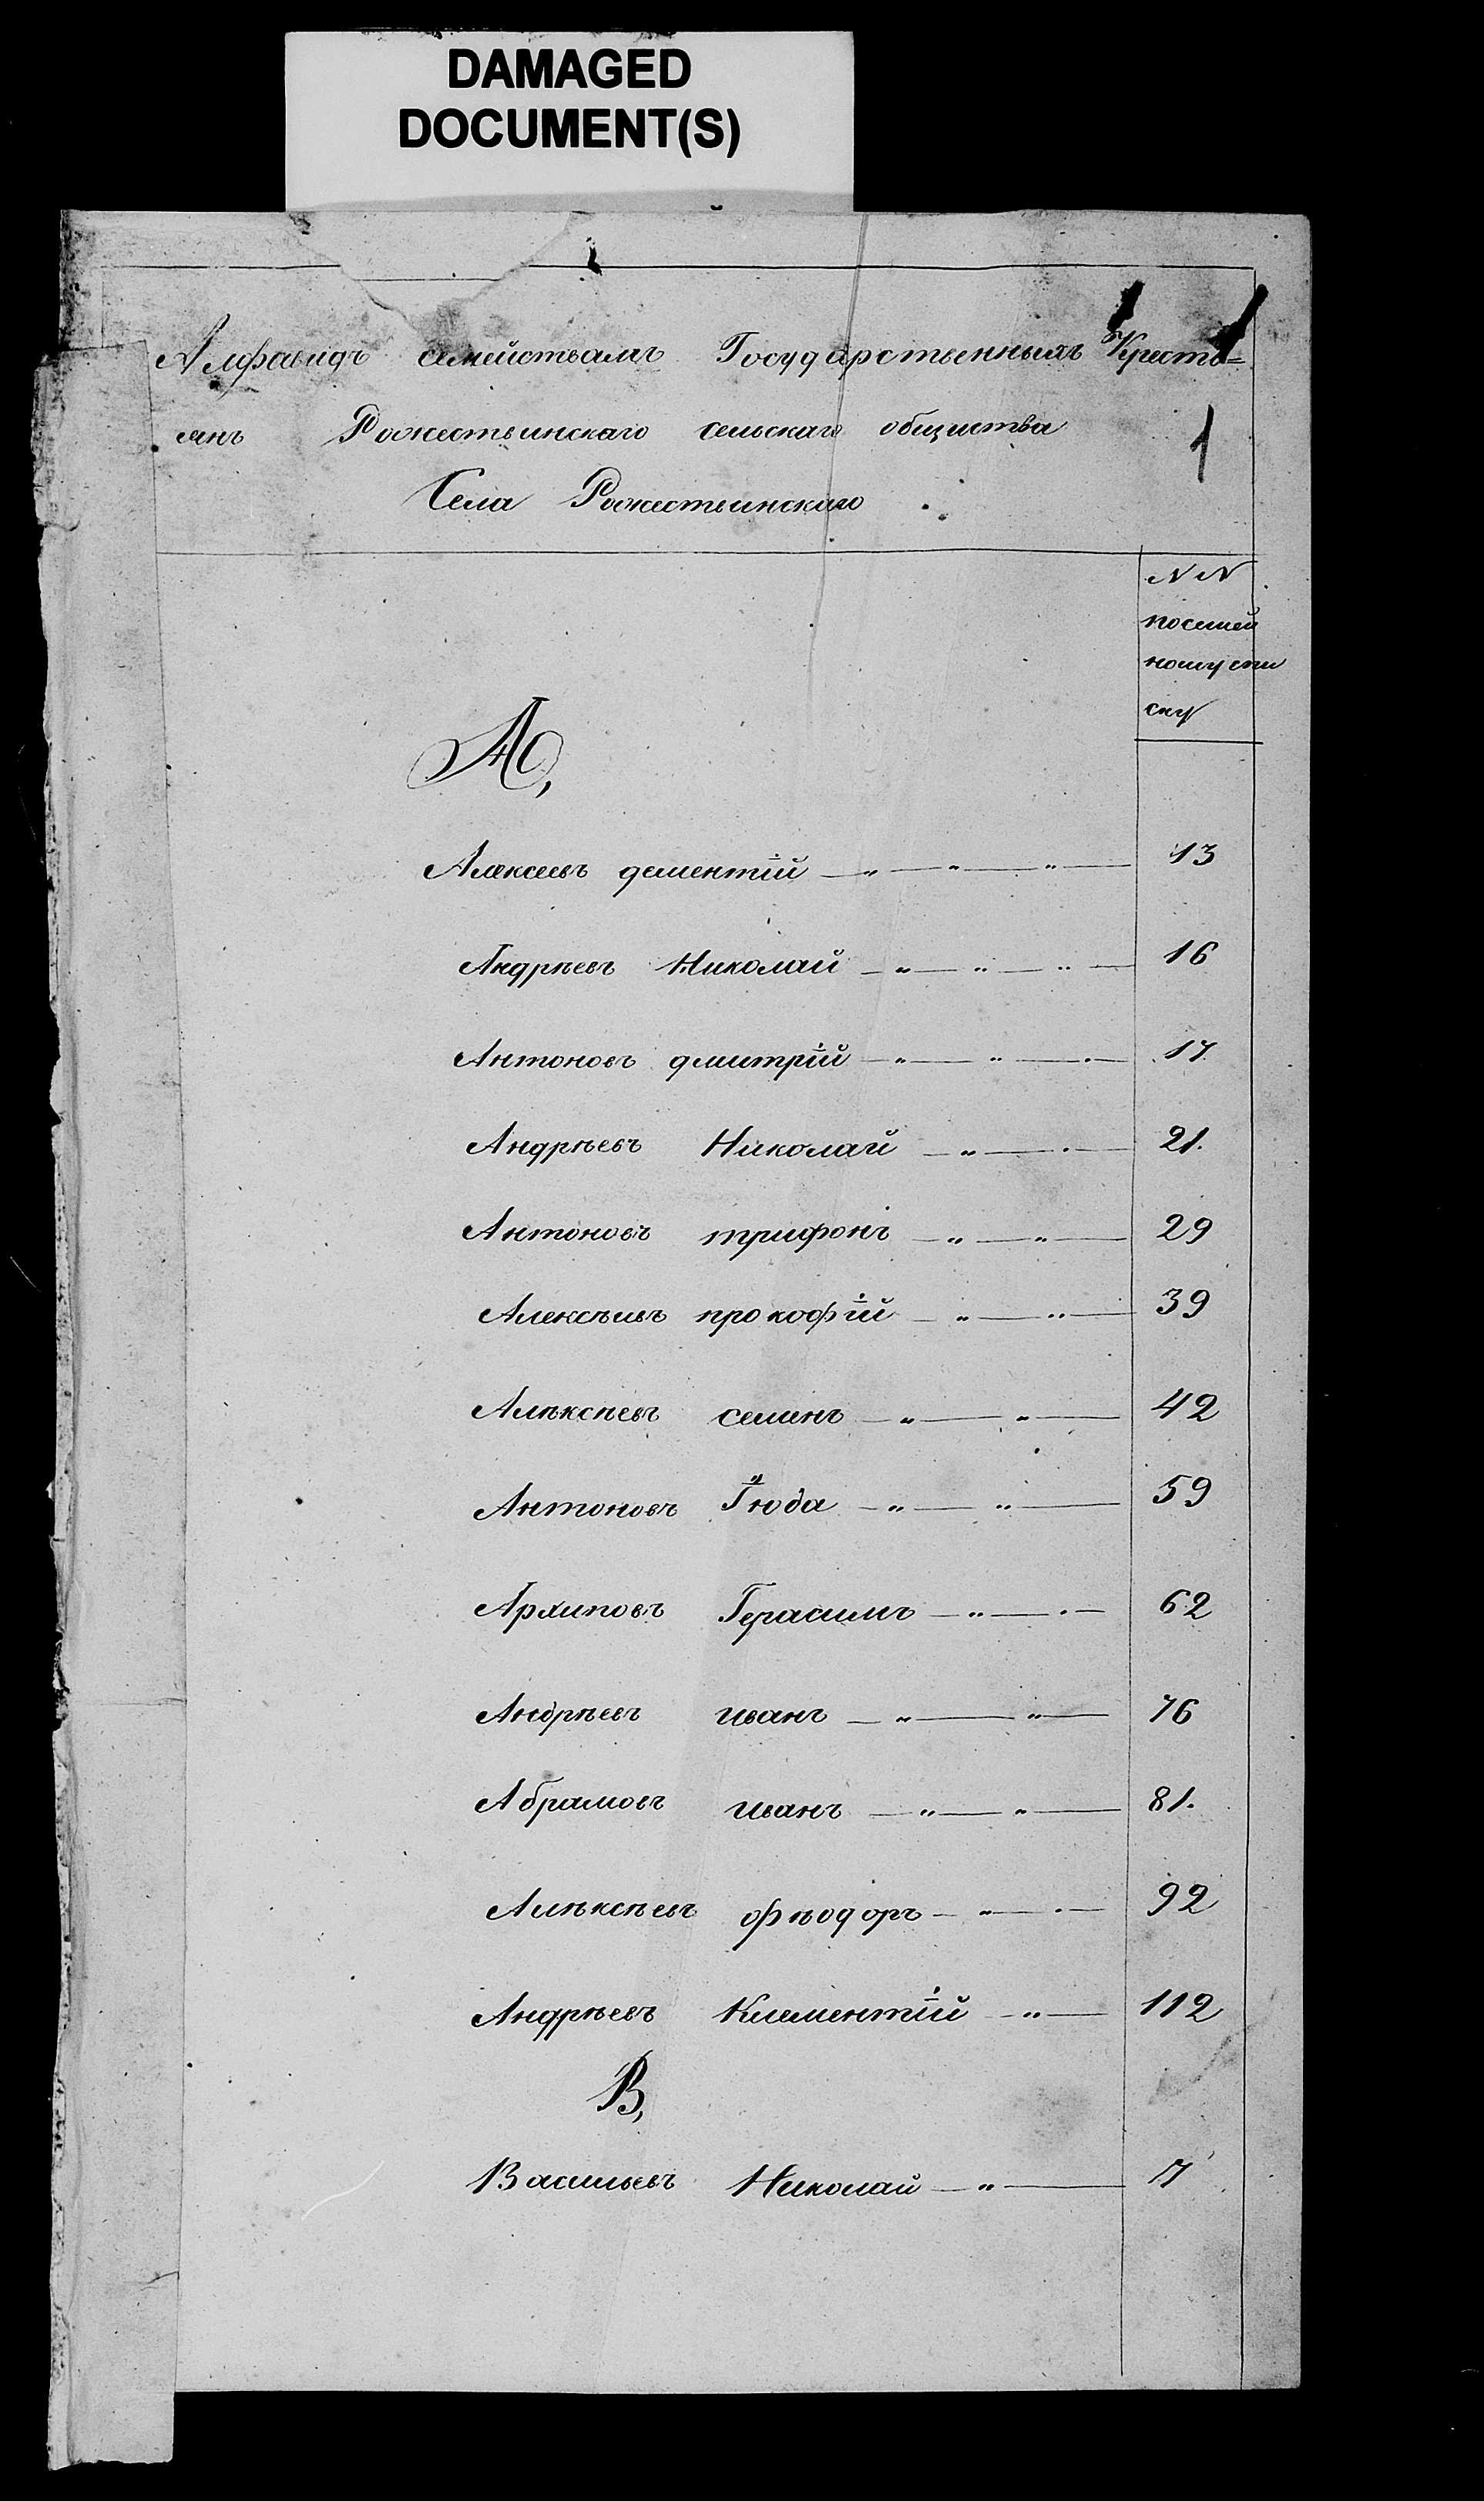 DAMAGED
DOCUMENT(S)
Алфавидъ семействамъ Государственныхъ Кресть=
янъ Рожественскаго сельскаго общества
1
Села Рожественскаго
N N
посемей
ному спи
ску
А,
Алексеевъ дементій 13
Андрѣевъ Николай 16
Антоновъ дмитрій 17.
Андрѣевъ Николай 21.
Антоновъ трифонъ 29
Алексѣевъ прокофій 39
Алѣксѣевъ семенъ 42
Антоновъ 59
Архиповъ Герасимъ 62
Андрѣевъ иванъ 76
Абрамовъ иванъ 81.
Алѣксѣевъ фѣодоръ 92
Андрѣевъ Клементій 112
В,
Васильевъ Николай 7